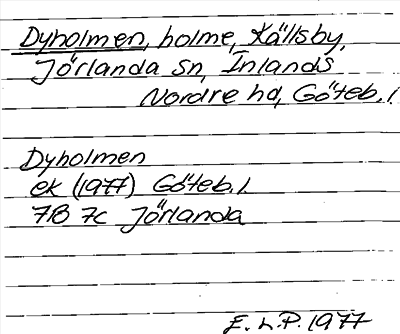 Dyholmen, holme, Källsby,
Jörlanda sn, Inlands
Nordre hd, Göteb. l
Dyholmen
ek (1977) Göteb. l
7B 7c Jörlanda
E. L. P. 1977